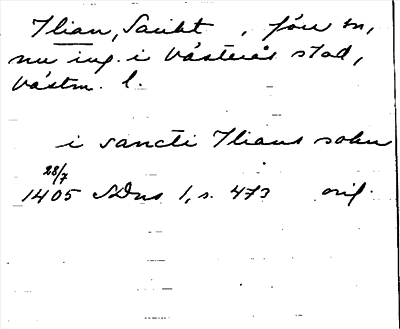 Ilian, Sankt, förr sn,
nu ing. i Västerås stad,
Västm. l.
i sancti Ilians sokn
28/7
1405 SDns 1, s. 473 orig.